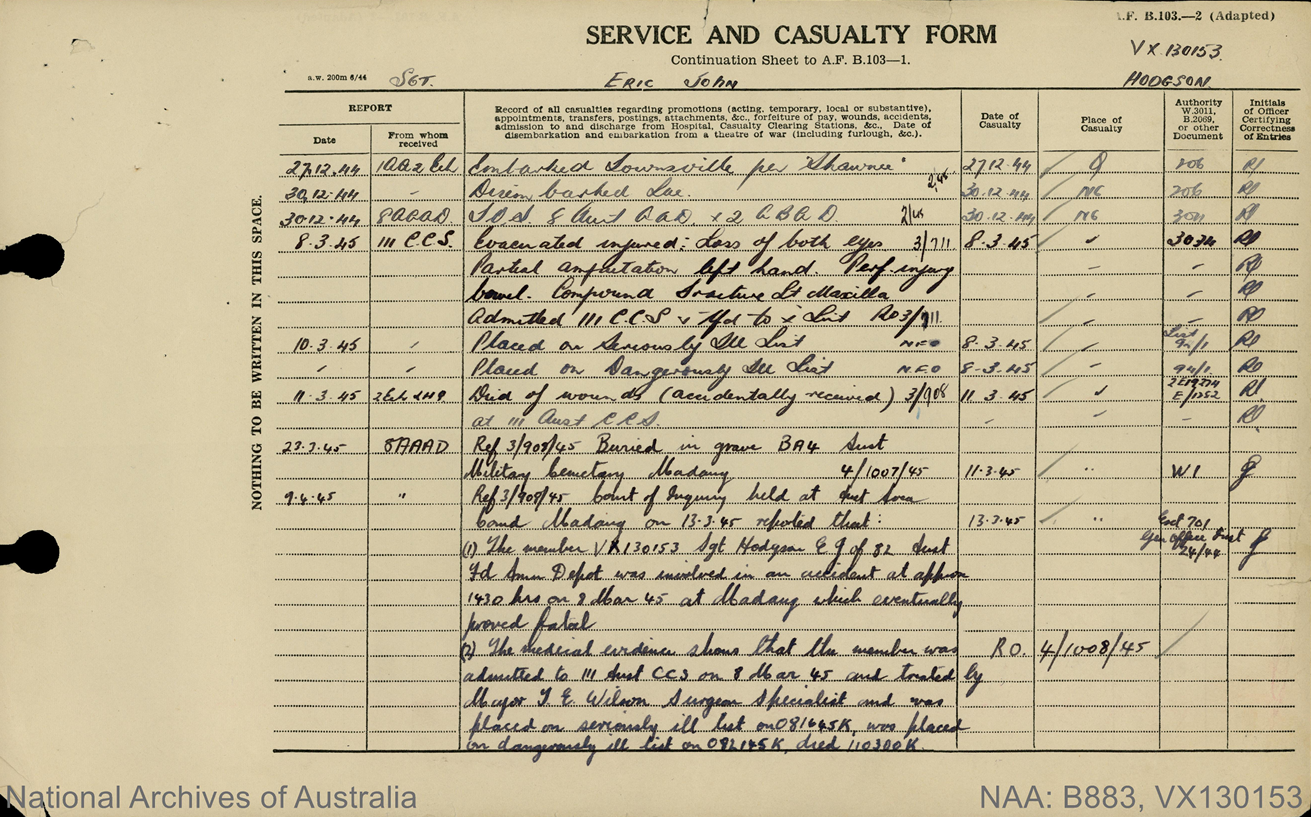 A.F. B.103.—2 (Adapted)
SERVICE AND CASUALTY FORM
Continuation Sheet to A.F. B.103—1.
VX130153
a.w. 200m 6/44 SGT. ERIC JOHN HODGSON.
REPORT
Date
From whom received
Record of all casualties regarding promotions (acting, temporary, local or substantive), appointments, transfers, postings, attachments, &c., forfeiture of pay, wounds, accidents, admission to and discharge from Hospital, Casualty Clearing Stations, &c., Date of disembarkation and embarkation from a theatre of war (including furlough, &c.).
Date of Casualty
Place of Casualty
Authority W.3011, B.2069, or other Document
Initials of Officer Certifying Correctness of Entries
NOTHING TO BE WRITTEN IN THIS SPACE.
27.12.44 Embarked Townsville per "Shawnee" 27.12.44 Q 206
30.12.44 - Disembarked Lae. 30.12.44 NG 206
30.12.44 8AAAD. T.O.S. 8 Aust AAD x 2 ABAD. 30.12.44 NG 3011
8.3.45 111 C.C.S. Evacuated injured: Loss of both eyes 3/711 8.3.45 " 3034
Partial amputation left hand. Perf. injury - -
bowel. Compound fracture Lt Maxilla - -
Admitted 111 C.C.S & Tfd to x List RO3/711. - -
10.3.45 Placed on Seriously Ill List NFO 8-3-45 List 94/1
Placed on Dangerously Ill List NFO 8-3-45 94/1
11-3-45 Died of wounds (accidentally received) 3/908 11.3.45 E/1252
at 111 Aust CCS. - -
23.3.45 8AAAD Ref 3/908/45 Buried in grave BA4 Aust
Military Cemetary Madang 4/1007/45 11.3.45 " W1
9.4.45 " Ref 3/908/45 Court of Inquiry held at Aust Area
Comd Madang on 13.3.45 reported that: 13.3.45 "
24/44
(1) The member VX130153 Sgt Hodgson E J of 82 Aust
Fd Amm Depot was involved in an accident at approx
1430 hrs on 8 Mar 45 at Madang which eventually
proved fatal
(2) The medical evidence shows that the member was R.O. 4/1008/45
admitted to 111 Aust CCS on 8 Mar 45 and treated by
Major T. E. Wilson Surgeon Specialist and was
placed on seriously ill list on 081645K, was placed
on dangerously ill list on 082145K, died 110300K.
National Archives of Australia
NAA: B883, VX130153